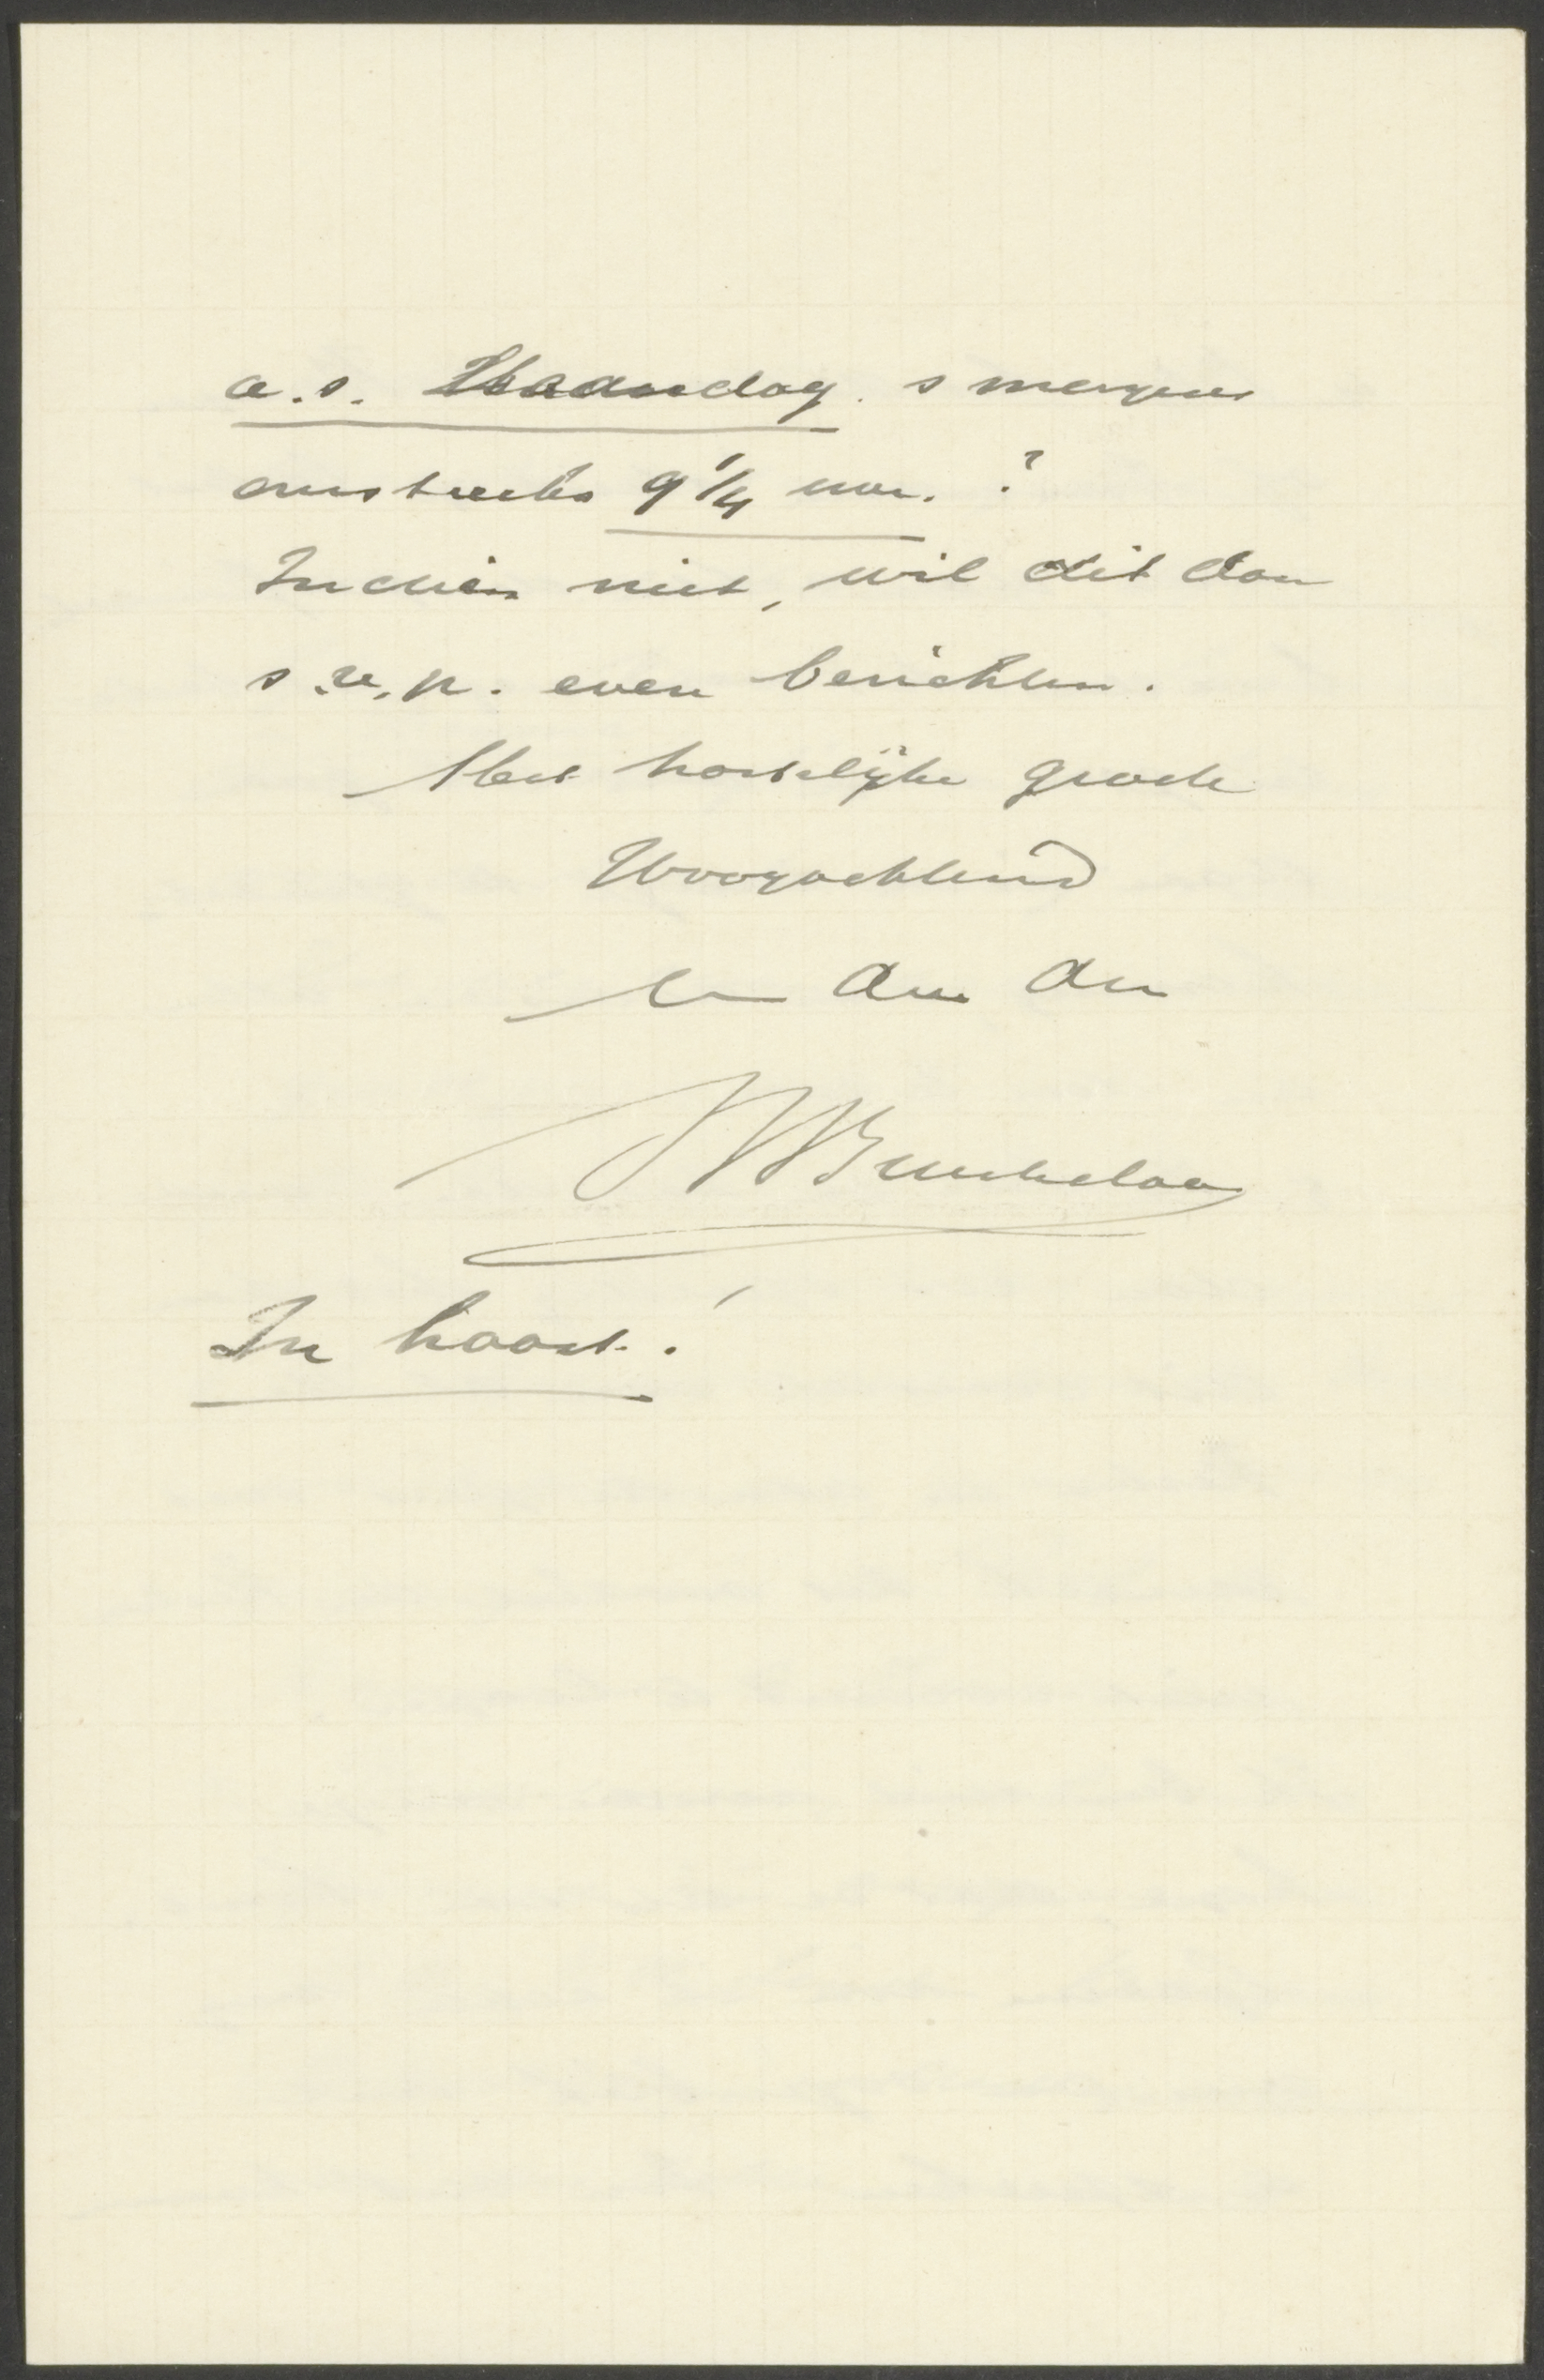 a.s. Maandag s morgens
omstreeks 9 1/4 uur. ?
Indien niet, wil dit dan
s.v.p. even berichten.
Met hartelijke groete
Hoogachtend
Uw Dw Dn
In haast!